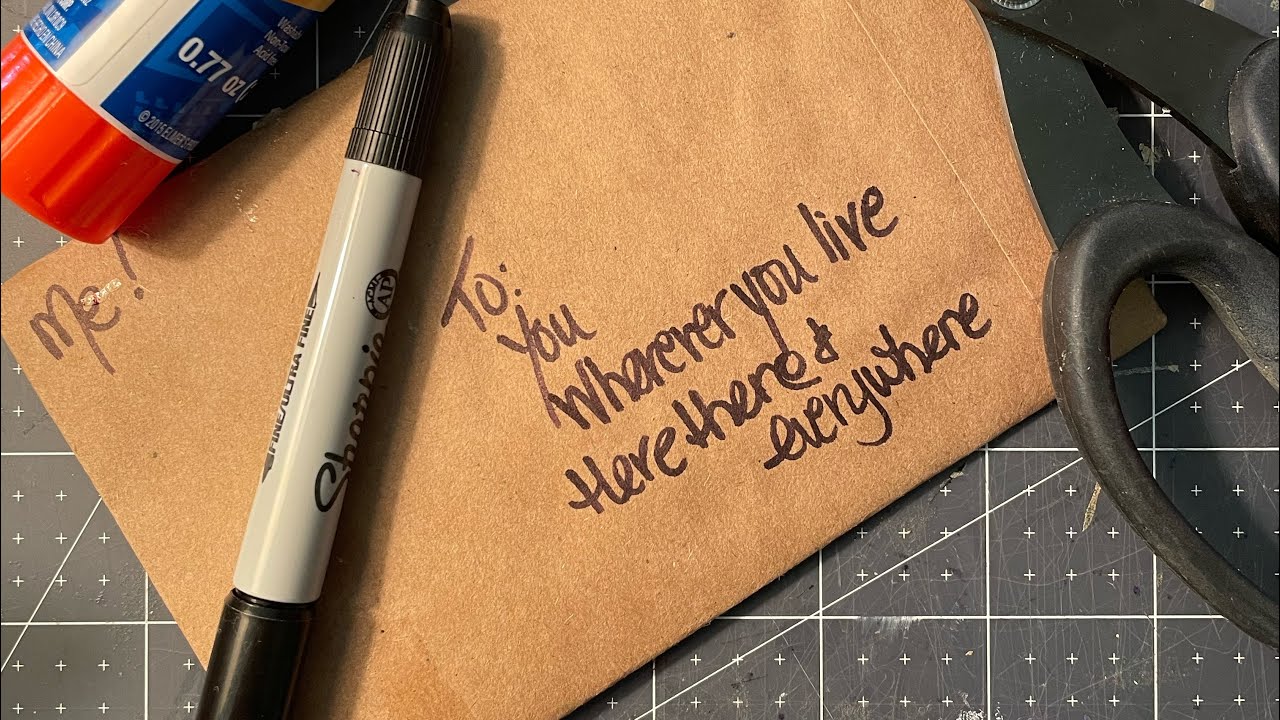 0.77 OZ
© 2015 ELMER'S
Me!
To:
You
Wherever you live
Here there &
everywhere
FINE/ULTRA FINE
Sharpie
AP